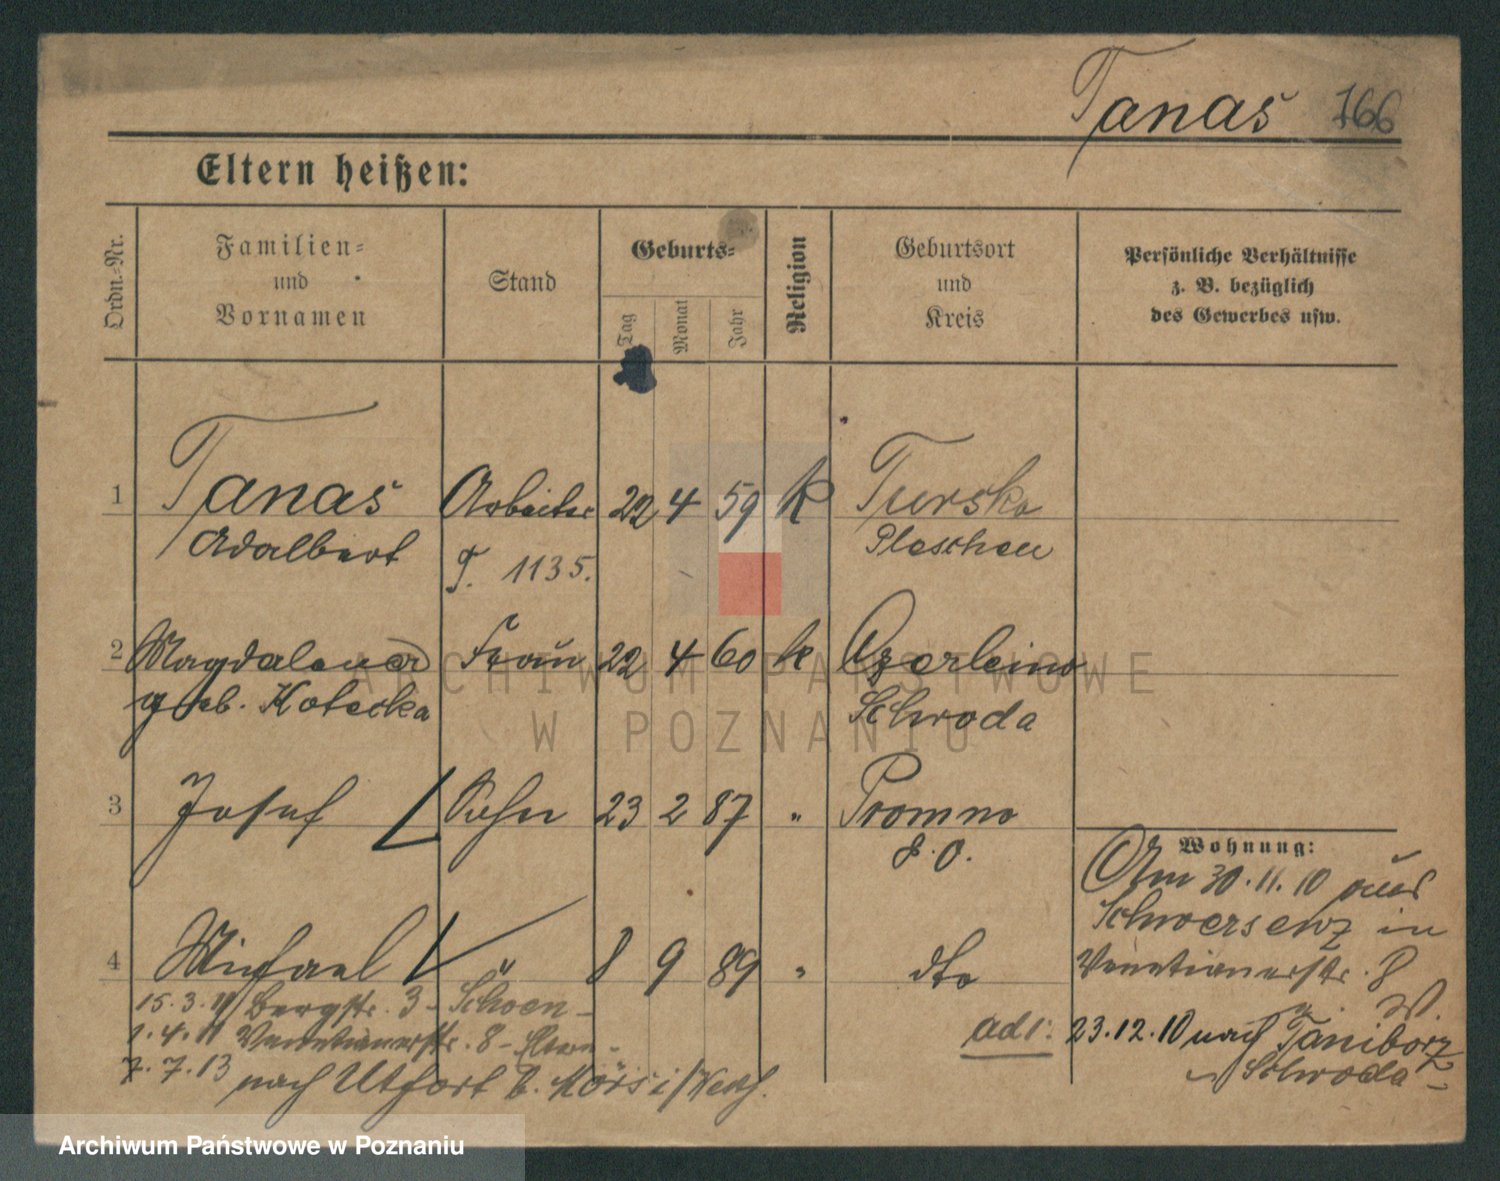 Tanaś 166
Eltern heißen:
Ordn.-Nr.
Familien-
und
Vornamen
Stand
Geburts-
Tag
Monat
Jahr
Religion
Geburtsort
und
Kreis
Persönliche Verhältnisse
z. B. bezüglich
des Gewerbes usw.
1 Tanaś Arbeiter 22 4 59 k Tursko
Adalbert Pleschen
T. 1135.
2 Magdalena Frau 22 4 60 k Czerleino
geb. Kotecka Schroda
3 Josef Sohn 23 2 87 " Promno
d. O.
Wohnung:
Am 30.11.10 aus
Schwersenz in
4 Michael " 8 9 89 " dto
Venetianerstr. 8
W.
15.3.11 Bergstr. 3 - Schoen -
ad 1: 23.12.10 nach Taniborz
1.4.11 Venetianerstr. 8 -
Schroda -
7.7.13 nach Utfort b. Mörs i/
ARCHIWUM PAŃSTWOWE
W POZNANIU
Archiwum Państwowe w Poznaniu